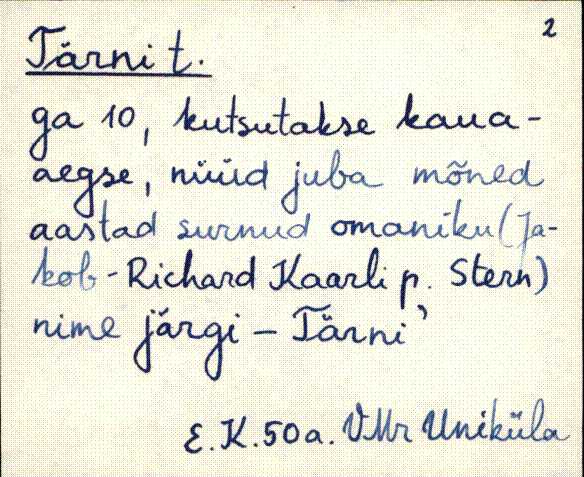 2
Tärni t.
ga 10, kutsutakse kaua-
aegse, nüüd juba mõned
aastad surnud omaniku (Ja-
kob-Richard Kaarli p. Stern)
nime järgi – Tärni’
E.K. 50 a. VMr Uniküla